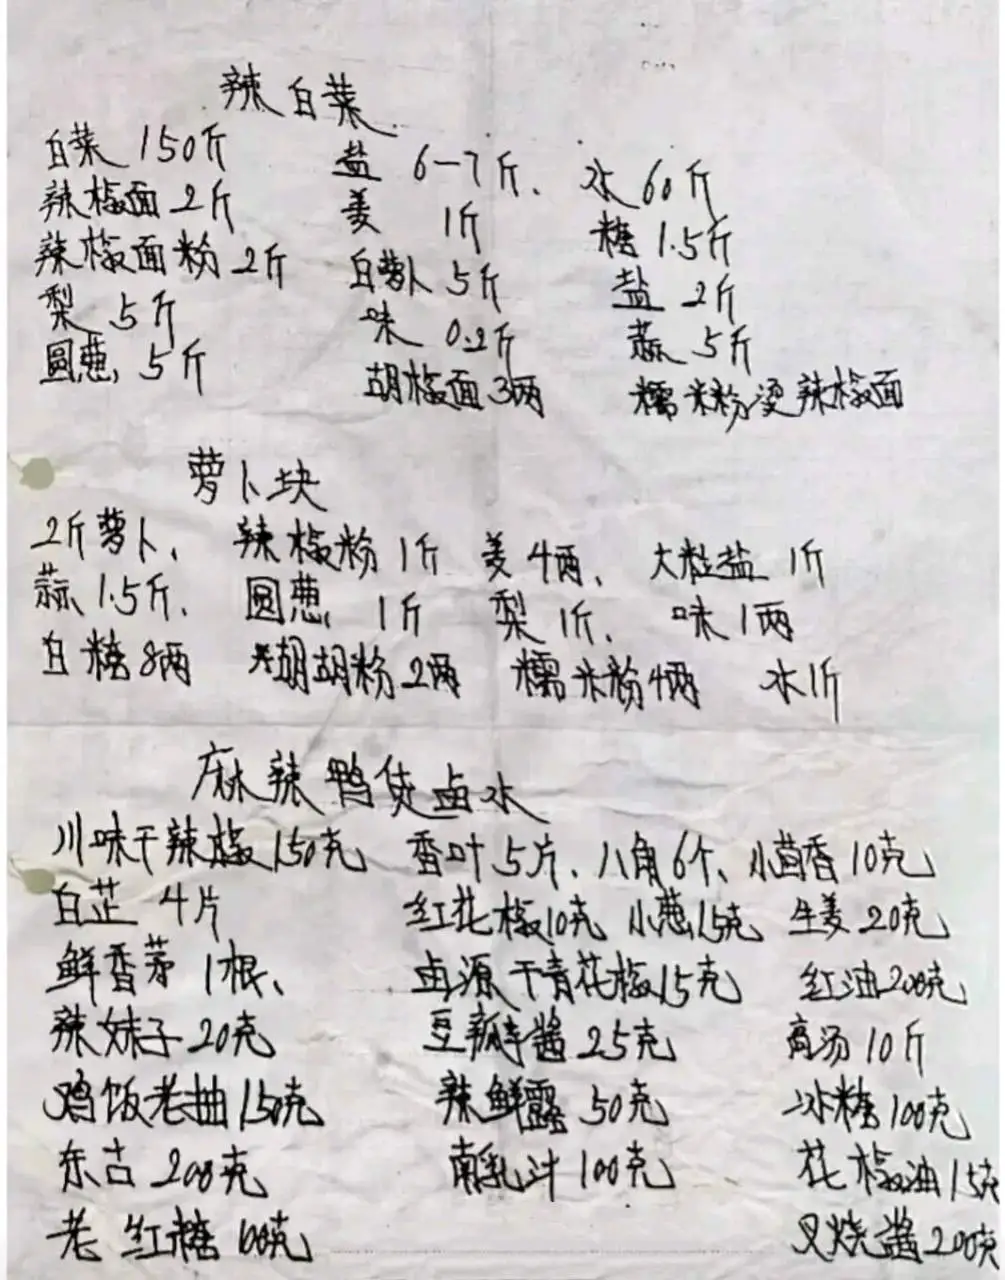 辣白菜
白菜 150斤 盐 6-7斤、 水 60斤
辣椒面 2斤 姜 1斤 糖 1.5斤
辣椒面粉 2斤 白萝卜 5斤 盐 2斤
梨 5斤 味 0.2斤 蒜 5斤
圆葱 5斤 胡椒面 3两 糯米粉烫辣椒面
萝卜块
2斤萝卜、 辣椒粉 1斤 姜 4两、 大粒盐 1斤
蒜 1.5斤、 圆葱 1斤 梨 1斤、 味 1两
白糖 8两 胡粉 2两 糯米粉 4两 水 1斤
麻辣鸭货卤水
川味干辣椒 150克 香叶 5片、八角 6个、小茴香 10克
白芷 4片 红花椒 10克 小葱 15克 生姜 20克
鲜香茅 1根、 卤源干青花椒 15克 红油 200克
辣妹子 20克 豆瓣酱 25克 高汤 10斤
鸡饭老抽 150克 辣鲜露 50克 冰糖 100克
东古 200克 南乳汁 100克 花椒油 15克
老红糖 100克 叉烧酱 200克